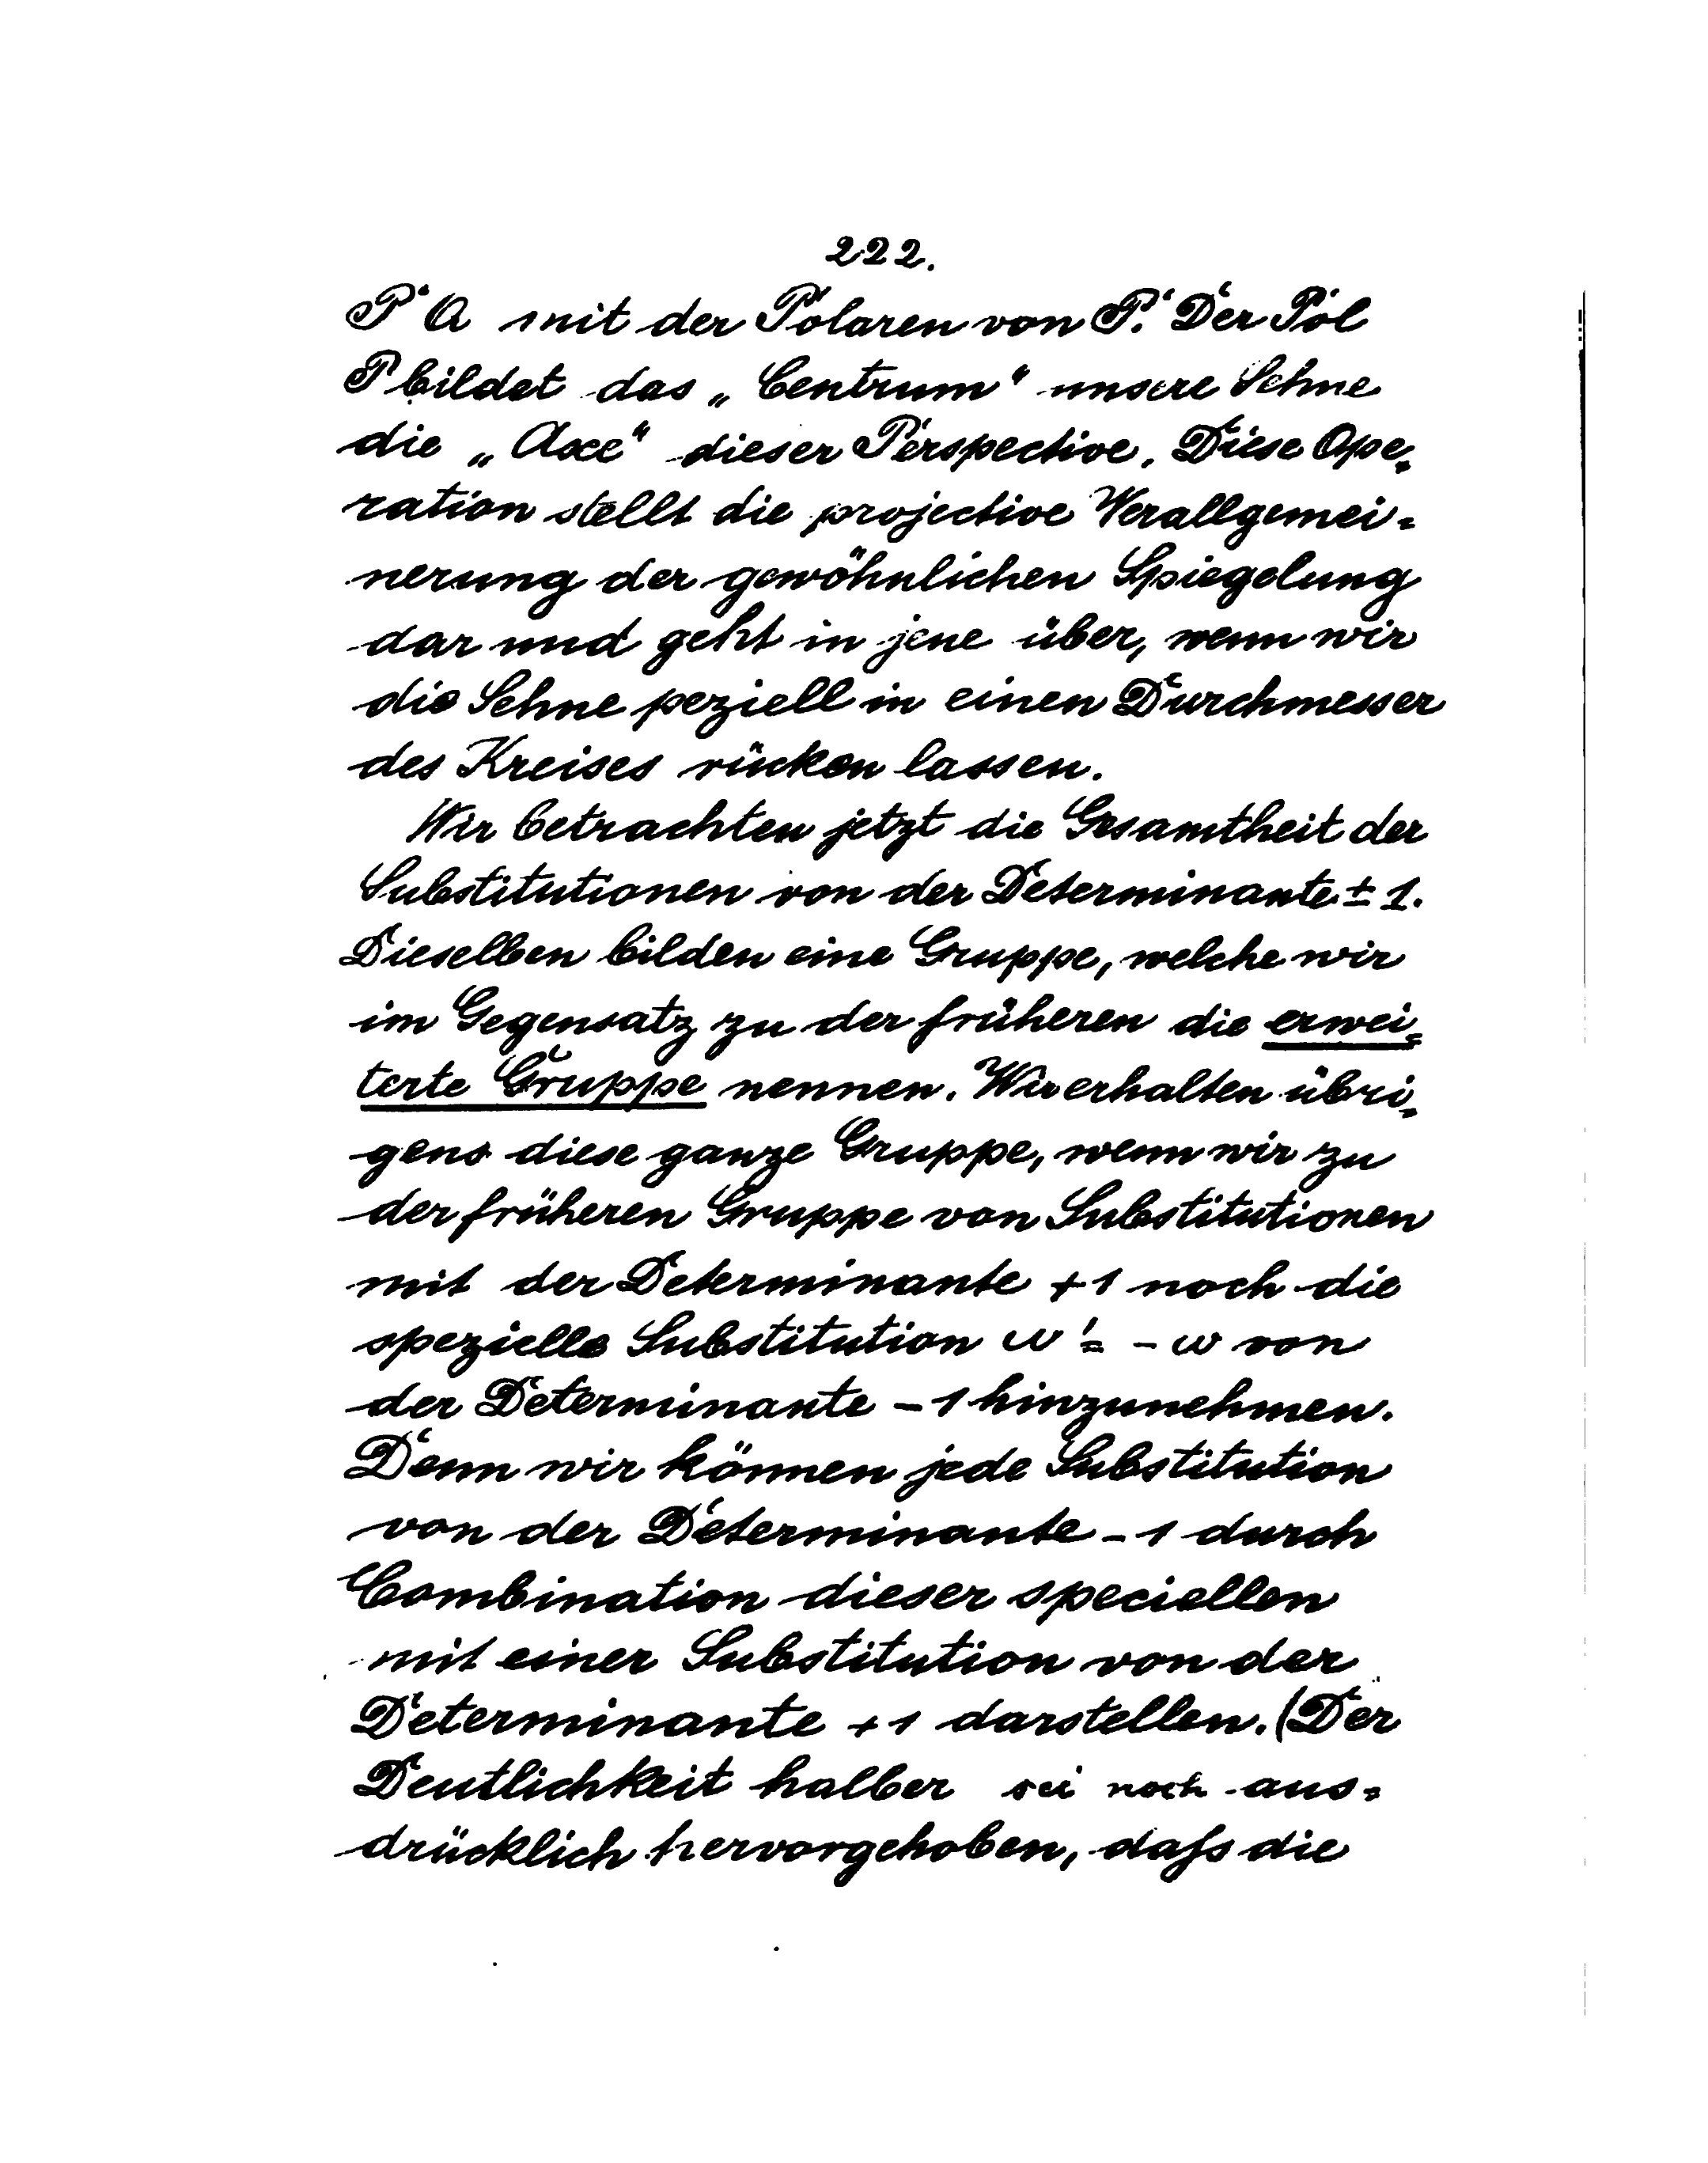 222.
P A mit der Polaren von P. Der Pol
P bildet das „Centrum" unsere Sehne
die „Axe" dieser Perspective. Diese Ope=
ration stellt die projective Verallgemei=
nerung der gewöhnlichen Spiegelung
dar und geht in jene über, wenn wir
die Sehne peziell in einen Durchmesser
des Kreises rücken lassen.
Wir betrachten jetzt die Gesamtheit der
Substitutionen von der Determinante ± 1.
Dieselben bilden eine Gruppe, welche wir
im Gegensatz zu der früheren die erwei=
terte Gruppe nennen. Wir erhalten übri=
gens diese ganze Gruppe, wenn wir zu
der früheren Gruppe von Substitutionen
mit der Determinante +1 noch die
spezielle Substitution ω' = - ω von
der Determinante -1 hinzunehmen.
Denn wir können jede Substitution
von der Determinante -1 durch
Combination dieser speciellen
mit einer Substitution von der
Determinante +1 darstellen. (Der
Deutlichkeit halber sei noch aus=
drücklich hervorgehoben, daſs die